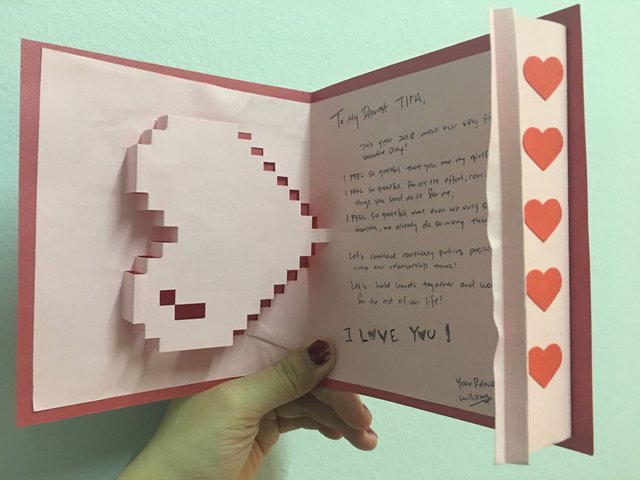 To My Dearest TIFA,
This year 2018 marks our very
Valentine Day!
I FEEL so grateful that you are my
I FEEL so grateful for all the effort,
things you had done for me,
I FEEL so grateful that even we only
months, we already do so many
Let's continue consciously putting
into our relationship tank!
Let's hold hands together and
for the rest of our life!
I LOVE YOU!
Your
William